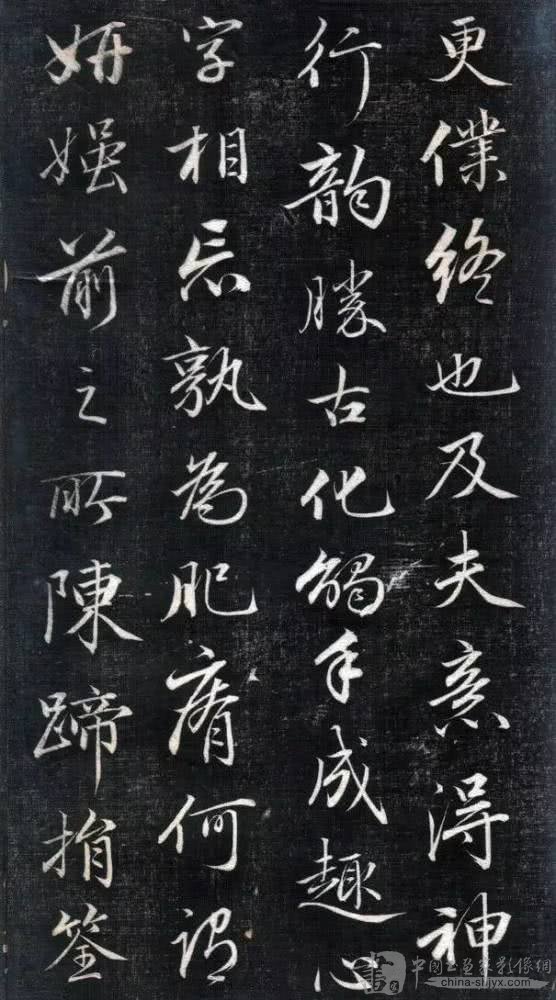 更僕終也及夫意得神
行韻勝古化觸手成趣心
字相忘孰為肥瘠何謂
妍媸前之所陳蹄捐筌
中国书画家影像網
china-shjyx.com